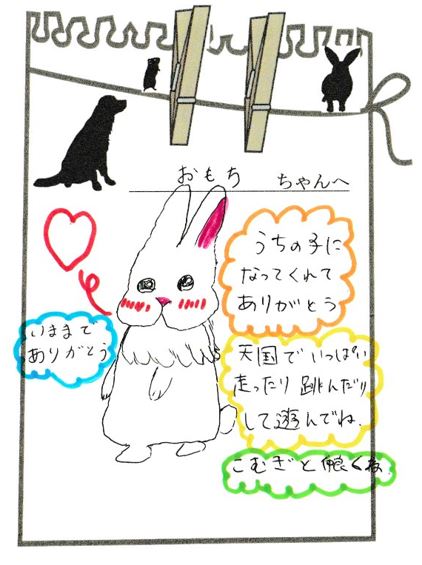 おもち ちゃんへ
うちの子に
なってくれて
ありがとう
いままで
ありがとう
天国でいっぱい
走ったり跳んだり
して遊んでね.
こむぎと仲良くね.